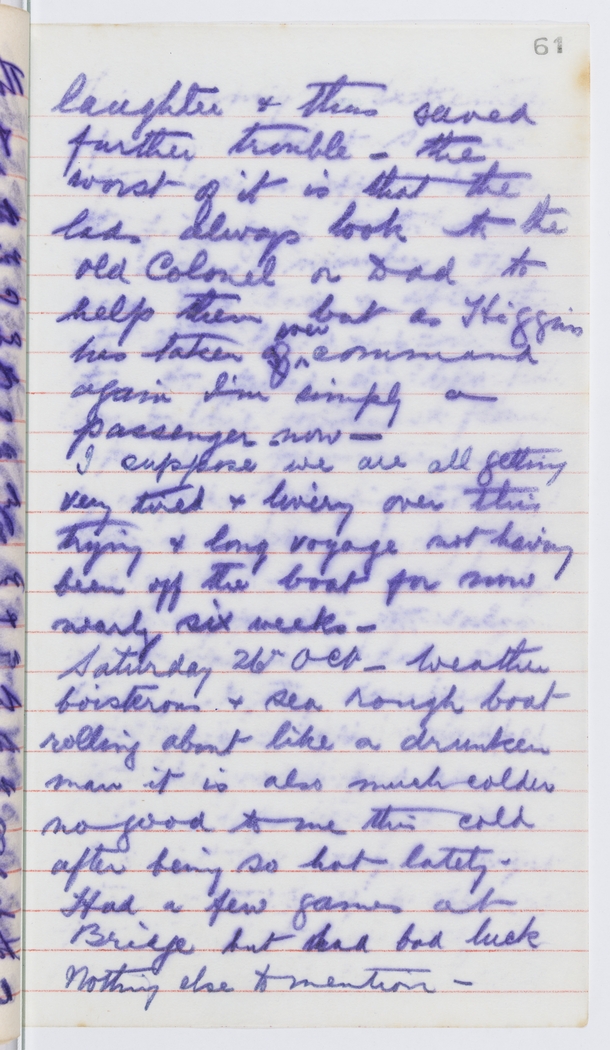 61
laughter & thus saved
further trouble - the
worst of it is that the
lads always look to the
old Colonel or Dad to
help them but as Higgins
has taken over command
again I'm simply a
passenger now -
I suppose we are all getting
very tired & livery over this
trying & long voyage not having
been off the boat for now
nearly six weeks -
Saturday 26th Oct - Weather
boisterous & sea rough boat
rolling about like a drunken
man it is also much colder
no good to me this cold
after being so hot lately.
Had a few games at
Bridge but had bad luck
Nothing else to mention -